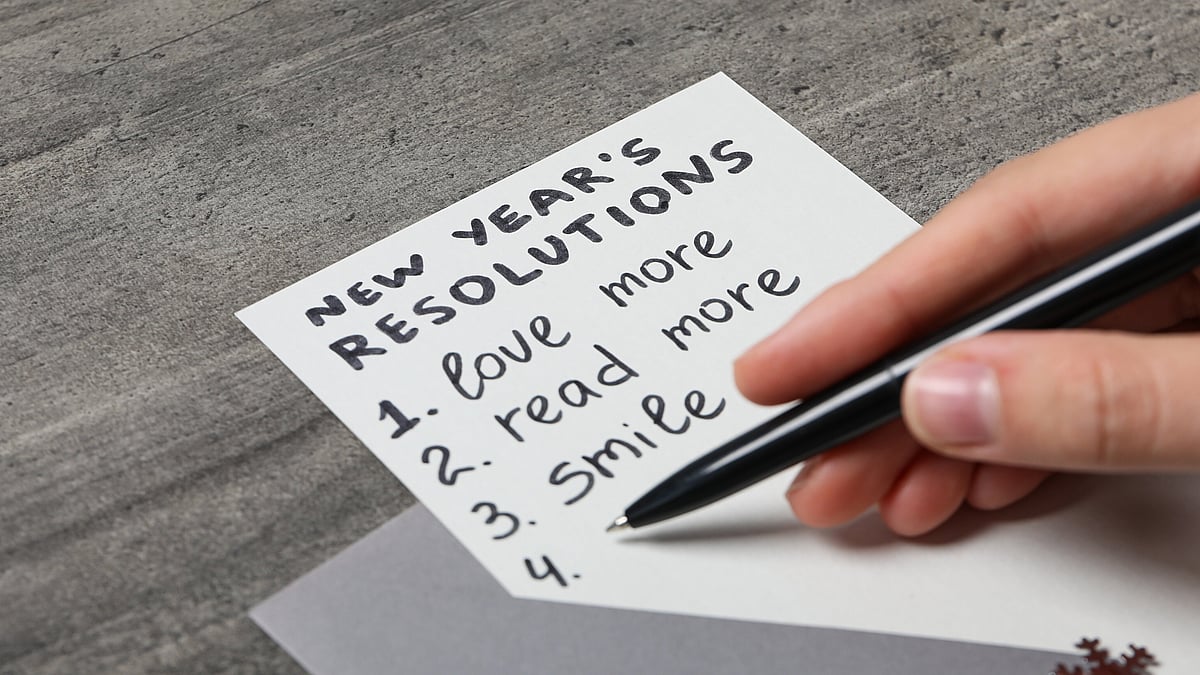 NEW YEAR'S
RESOLUTIONS
1. love more
2. read more
3. smile
4.